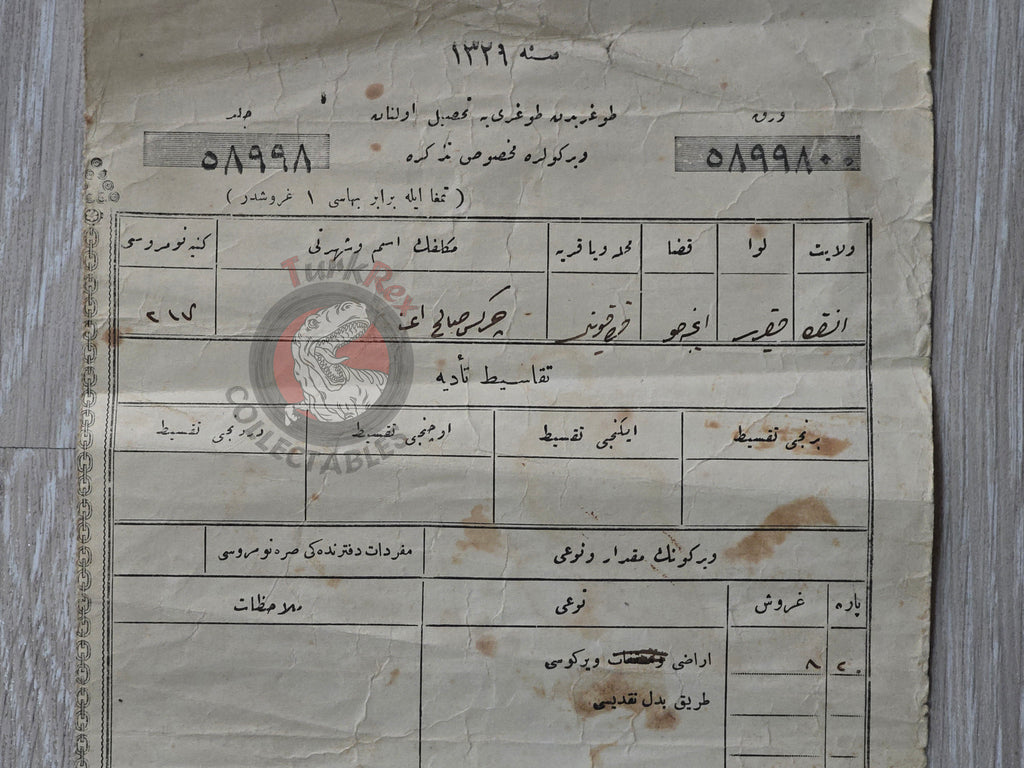 سنه ١٣٢٩
ورق
طوغریدن طوغری یه تحصیل اولنان
جلد
٥٨٩٩٨٠٠
ویرکولره مخصوص تذکره
٥٨٩٩٨
( تمغا ایله برابر بهاسی ١ غروشدر )
ولایت لوا قضا محله ویا قریه مكلفك اسم وشهرتی کتبه نومروسی
انقره چرکس صالح ٢١٧
تقاسیط تأدیه
برنجی تقسیط ایکنجی تقسیط اوچنجی تقسیط دردنجی تقسیط
ویرکونك مقدار و نوعی مفردات دفترنده کی صره نومروسی
پاره غروش نوعی ملاحظات
٢٠ ٨ اراضی ویرکوسی
طریق بدل نقدیسی
TunkRex
COLLECTABLES